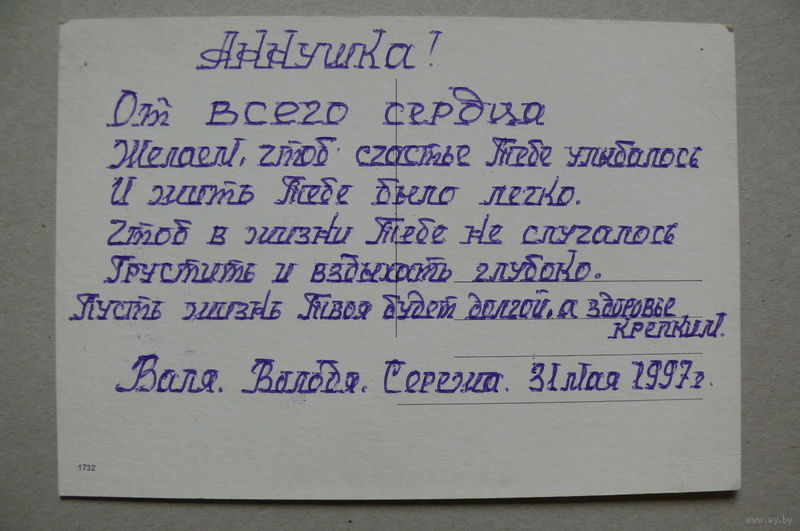 Аннушка!
От всего сердца
Желаем, чтоб счастье Тебе улыбалось
И жить Тебе было легко.
Чтоб в жизни Тебе не случалось
Грустить и вздыхать глубоко.
Пусть жизнь Твоя будет долгой, а здоровье
крепким.
Валя. Володя. Сережа. 31 мая 1997г.
1732
www.ay.by